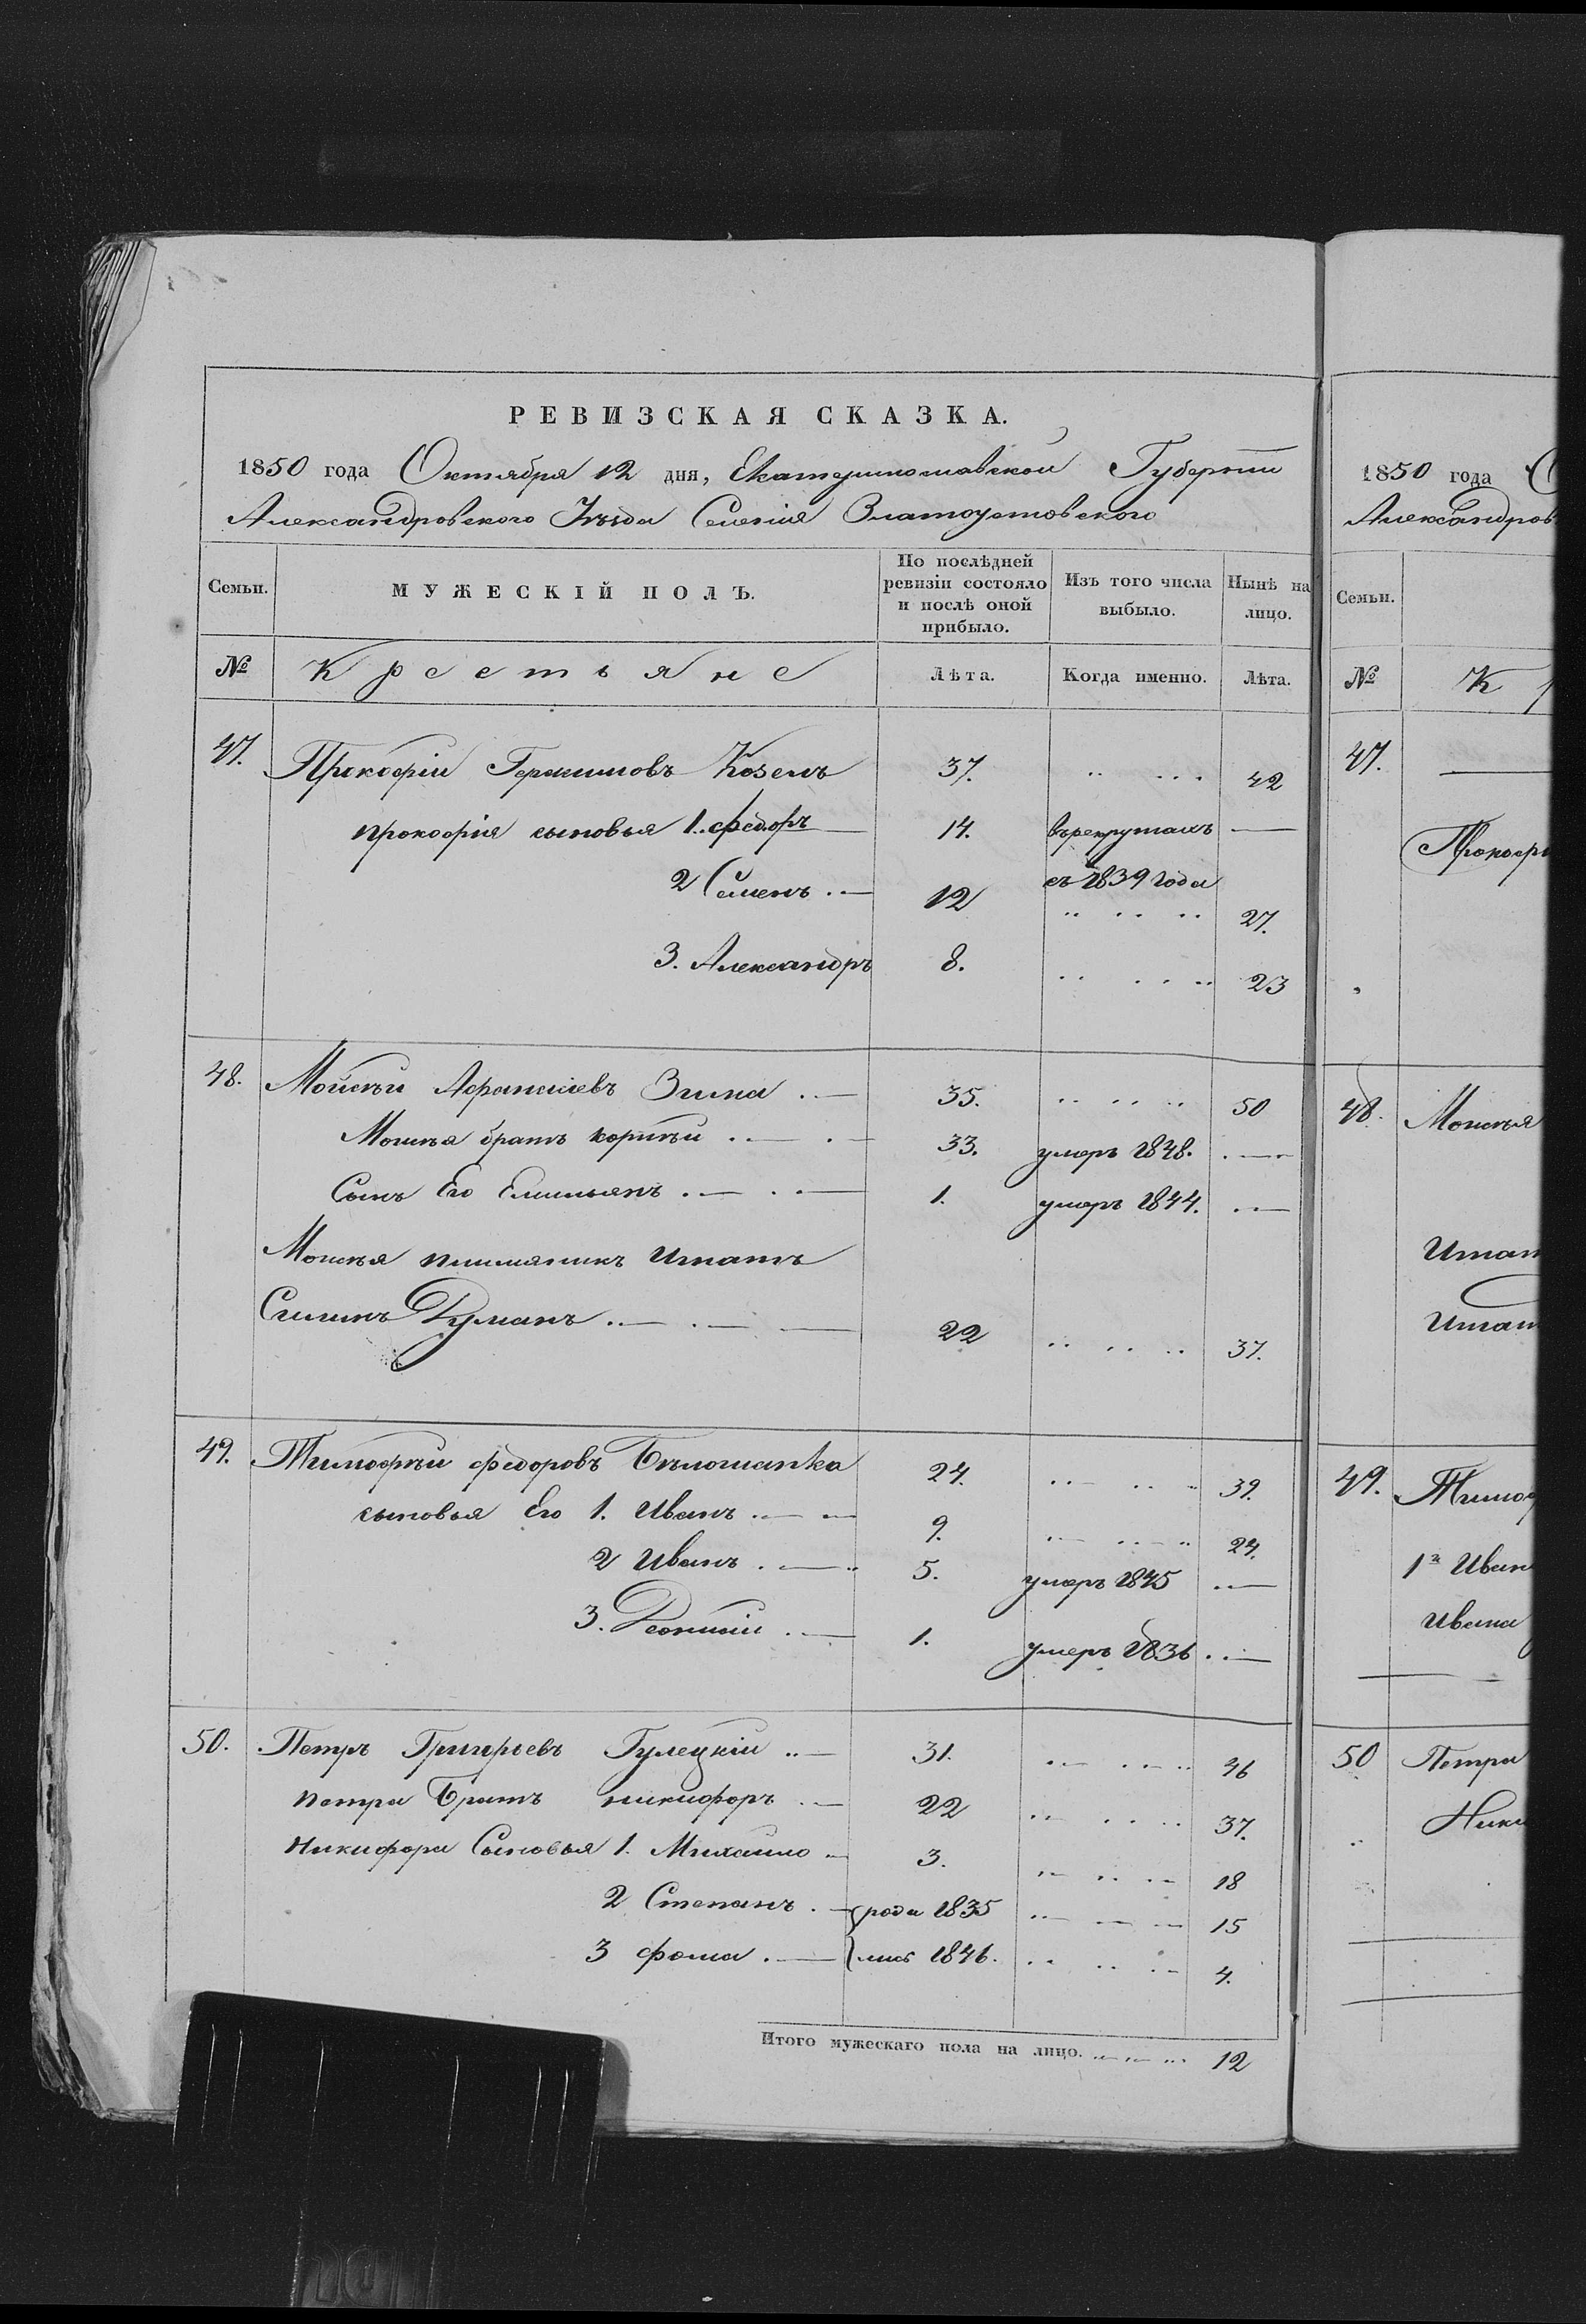 РЕВИЗСКАЯ СКАЗКА.
1850 года Октября 12 дня, Екатеринославской Губернии
Александровского Уѣзда Селенія Златоустовского
Семьи.
МУЖЕСКІЙ ПОЛЪ.
По послѣдней ревизіи состояло и послѣ оной прибыло.
Изъ того числа выбыло.
Нынѣ на лицо.
№ Крестьяне Лѣта. Когда именно. Лѣта.
47. Прокофій Герасимовъ Козелъ 37. 42
Прокофія сыновья 1. Федоръ 14. въ рекрутахъ
съ 1839 года
2 Семенъ 12 27.
3. Александръ 8. 23
48. Мойсѣй Афанасіевъ Зима 35. 50
Моисѣя братъ Корнѣй 33. умеръ 1848.
Сынъ Его Емельянъ 1. умеръ 1844.
Моисѣя племяникъ Игнатъ
Думанъ 22 37.
49. Тимофѣй Федоровъ Бѣлошапка 24. 39.
сыновья Его 1. Иванъ 9. 24.
2 Иванъ 5. умеръ 1845
3. Леонтій 1. умеръ 1836
50. Петръ Григорьевъ Гулецкій 31. 46
Петра Братъ Никифоръ 22 37.
Никифора Сыновья 1. Михайло 3. 18
2 Степанъ роди 1835 15
3 Фома лись 1846. 4.
Итого мужескаго пола на лицо. 12
1850 года О
Александров
Семьи.
№ К
47.
Прокофі
48. Моисѣя
Игнат
Игнат
49. Тимоф
1й Иван
Ивана
50 Петра
Ники